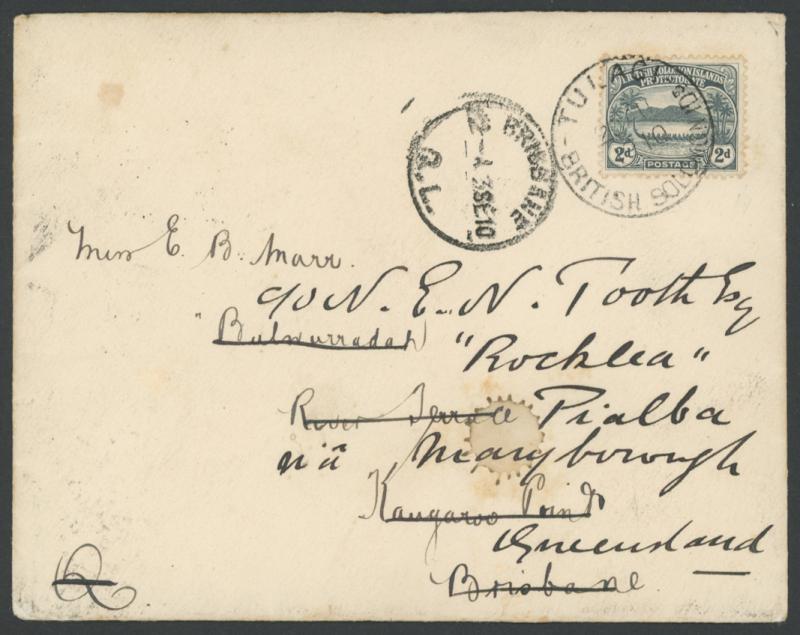 BRITISH SOLOMON ISLANDS
PROTECTORATE
2d 2d
POSTAGE
TULAGI
BRITISH SOLOMON IDS
BRISBANE
3 SE 10
Q.L.
Miss E. B. Marr.
c/o N. E. N. Tooth Esq
"Rocklea"
River Terrace Pialba
viâ Maryborough
Kangaroo Point
Queensland
Brisbane.
Q